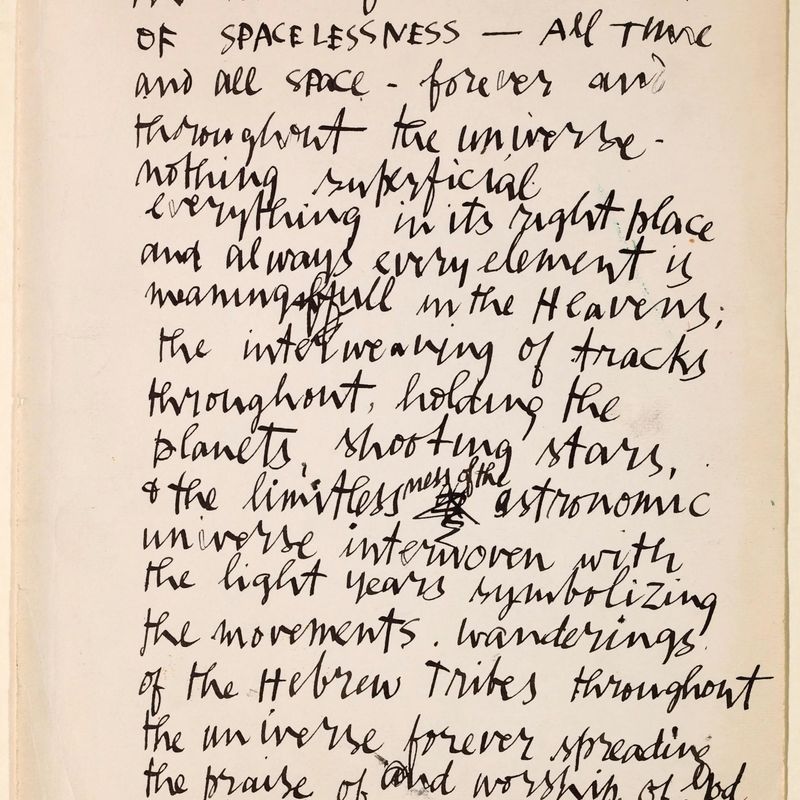 OF SPACELESSNESS — All TIME
and all space - forever and
throughout the universe -
nothing superficial
everything in its right place
and always every element is
meaningfull in the Heavens;
the interweaving of tracks
throughout, holding the
planets, shooting stars,
& the limitlessness of the astronomic
universe interwoven with
the light years symbolizing
the movements. wanderings
of the Hebrew Tribes throughout
the universe forever spreading
the praise of and worship of God